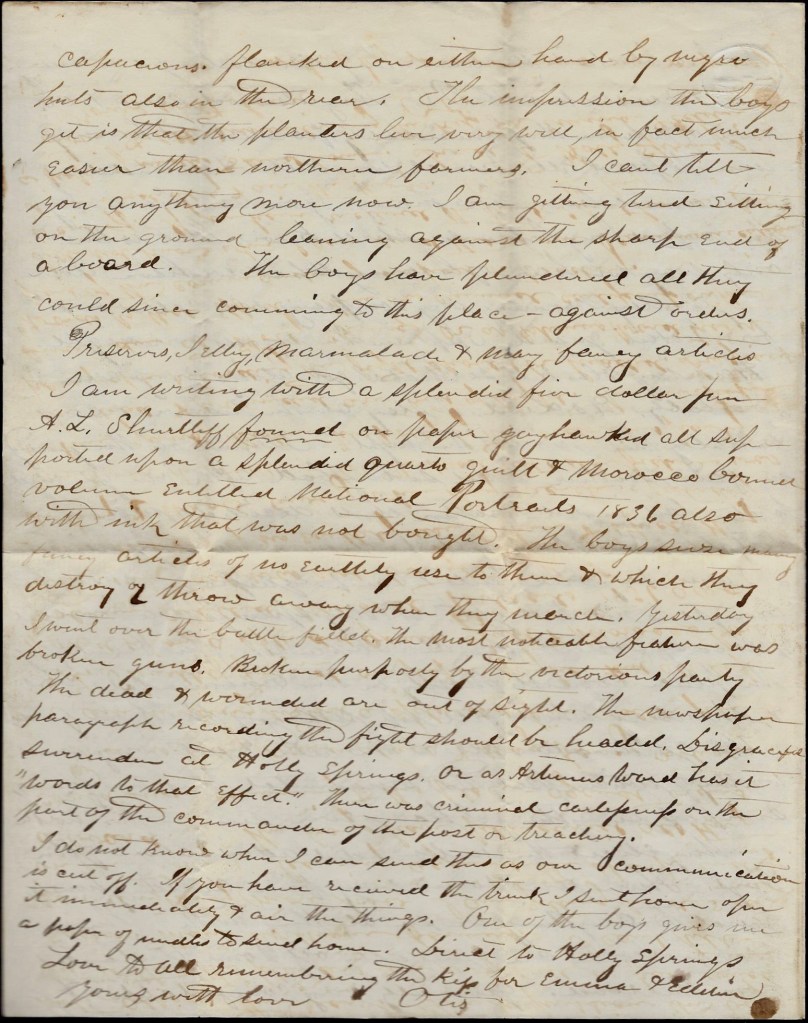 capacious. flanked on either hand by negro
huts also in the rear. The impression the boys
get is that the planters live very well, in fact much
easier than northern farmers. I cant tell
you anything more now. I am getting tired sitting
on the ground leaning against the sharp end of
a board. The boys have plundered all they
could since comming to this place - against orders.
Preserves, Jelley, Marmalade & many fancy articles
I am writing with a splendid five dollar pen
A. L. Shurtleff found on paper gayhawked all sup-
ported upon a splendid quarto guilt & Morocco bound
volume Entitled National Portraits 1836 also
with ink that was not bought. The boys seize many
fancy articles of no Earthly use to them & which they
destroy or throw away when they march. Yesterday
I went over the battle field. The most noticeable feature was
broken guns. Broken purposly by the victorious party
The dead & wounded are out of sight. The newspaper
paragraph recording the fight should be headed. Disgraceful
surrender at Holly Springs. or as Artemus Ward has it
"words to that Effect." There was criminal carlessness on the
part of the commander of the post or treachery.
I do not know when I can send this as our communication
is cut off. If you have recieved the trunk I sent home open
it immediately & air the things. One of the boys gives me
a paper of needles to send home. Direct to Holly Springs
Love to all remembering the kiss for Emma & Eddie
Yours with love Otis